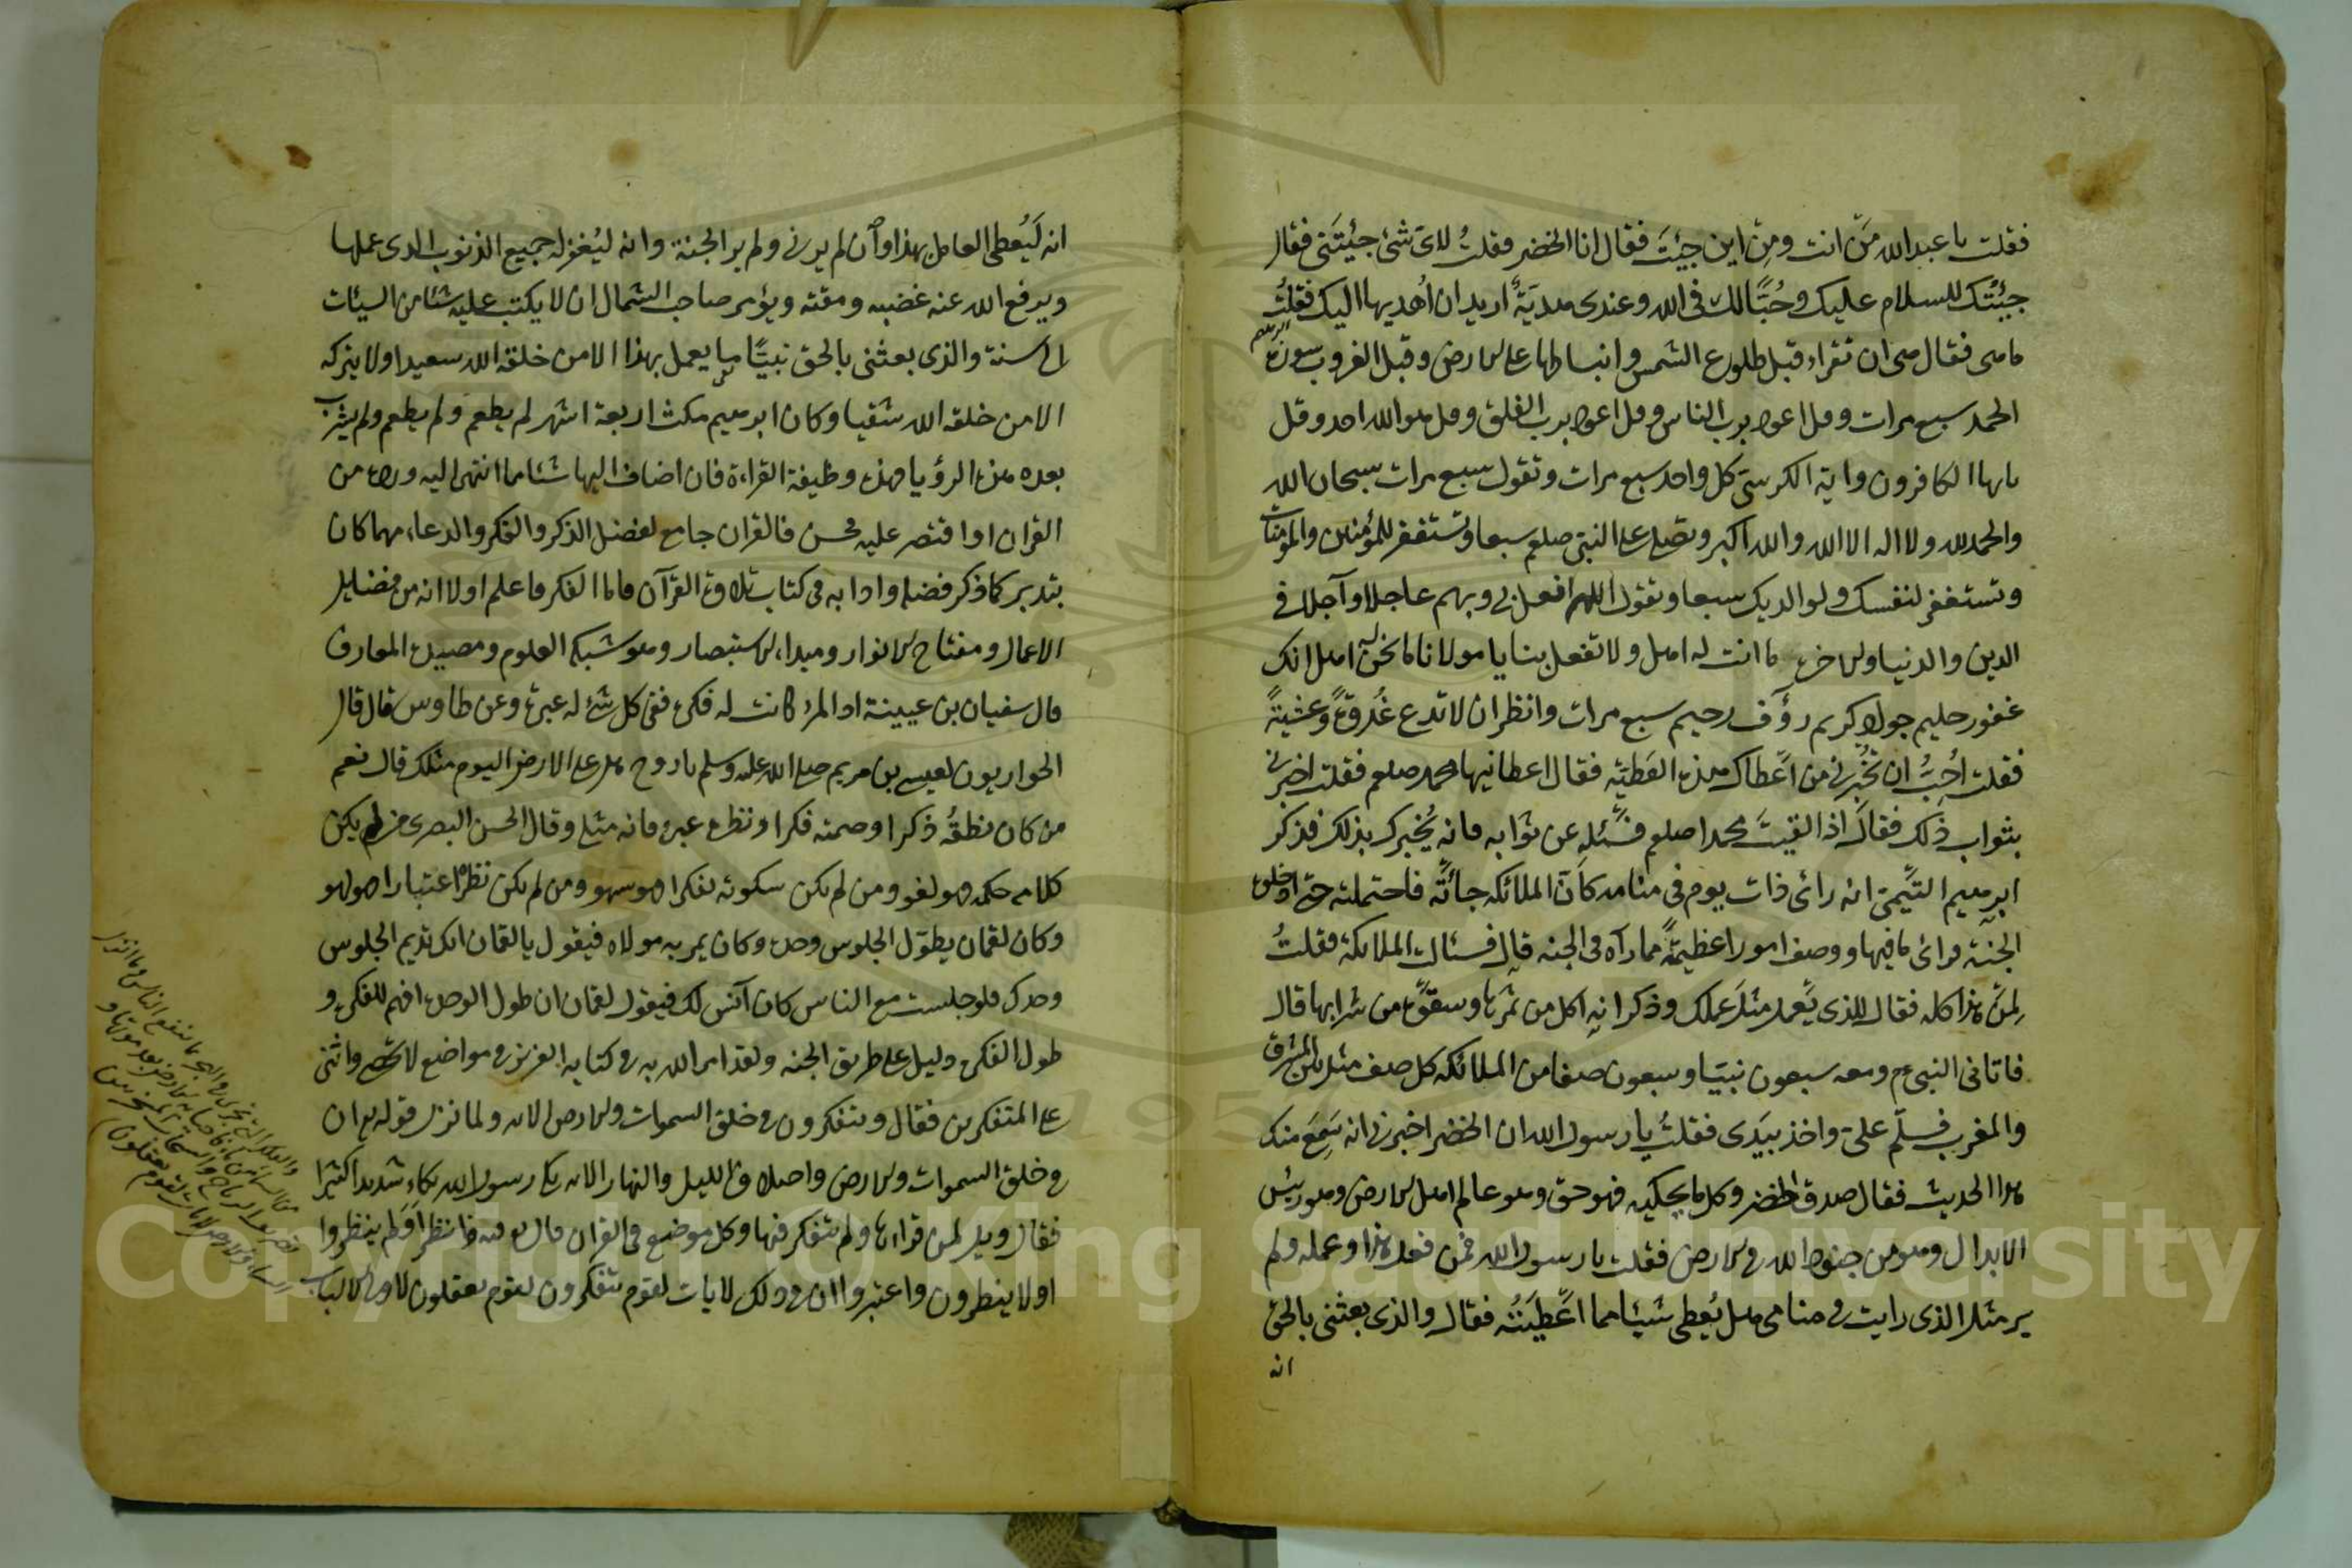 فقلت يا عبد الله مَن انت ومن اين جيئتَ فقال انا الخضر فقلتُ لاىّ شئ جيئتَنى فقال
جيئتك للسلام عليك وحُبًّا لك فى الله وعندى هديَةٌ اريد ان اُهديها اليك فقلتُ
ما هى فقال هى ان تقراء قبل طلوع الشمس وانبساطها على الارض وقبل الغروب سورة
الحمد سبع مرات وقل اعوذ برب الناس وقل اعوذ برب الفلق وقل هو الله احد وقل
يا ايها الكافرون واية الكرسىّ كل واحد سبع مرات وتقول سبع مرات سبحان الله
والحمد لله ولا اله الا الله والله اكبر وتصلى على النبىّ صلعم سبعا وتستغفر للمؤمنين والمؤمنات
وتستغفر لنفسك ولوالديك سبعا وتقول اللهم افعل بى وبهم عاجلا وآجلا فى
الدين والدنيا والاخرة ما انت له اهل ولا تفعل بنا يا مولانا ما نحن له اهل انك
غفور حليم جواد كريم رؤف رحيم سبع مرات وانظر ان لا تدع غُدوةً وعشيَّةً
فقلت اُحِبُّ ان تخُبِرنى من اَعطاك هذه العَطيّه فقال اعطانيها محمد صلعم فقلت اخبرنى
بثواب ذلك فقالَ اذا لقيتَ محمدا صلعم فسئله عن ثوابه فانه يُخبرك بذلك فذكر
ابرهيم التيّمىّ انه رائ ذات يوم فى منامه كاَنّ الملائكه جائتَّه فاحتملته حتى ادخلته
الجنة فرائ ما فيها ووصف امورا عظيمةً مما رآه فى الجنه قال فسئالت الملائكة فقلتُ
لِمَن هذا كله فقال للذى يَعمل مثلَ عملك وذكر انه اكل من ثمَرِها وسقوَّه من شرابها قال
فاتانى النبىء م ومعه سبعون نبيّا وسبعون صفا من الملائكه كل صف مثل ما بين المشرق
والمغرب فسلّم علىّ واخذ بيَدى فقلتُ يا رسول الله ان الخضر اخبرنى انه سَمِعَ منك
هذا الحديث فقال صدق الخضر وكل ما يحكيه فهو حق وهو عالم اهل الارض وهو رئيس
الابدال وهو من جنود الله فى الارض فقلت يا رسول الله فمن فعل هذا وعمله ولم
ير مثل الذى رايت فى منامى هل يُعطى شيئا مما اَعُطيتُه فقال والذى بعثنى بالحق
انه
انه لَيُعطى العامل بهذا وان لم يرنى ولم ير الجنة وانه ليُغفر له جميع الذنوب الذى عملها
ويرفع الله عنه غضبه ومقته ويؤمر صاحب الشمال ان لا يكتب عليه شئا من السيئات
الى سنة والذى بعثنى بالحق نبيًّا ما يعمل بهذا الا من خلقه الله سعيدا ولا يتركه
الا من خلقه الله شقيا وكان ابرهيم مكث اربعة اشهر لم يطعم ولم يطعم ولم يشرب
بعد هذه الرؤيا فهذه وظيفة القراءة فان اضاف اليها شئا مما انتهى اليه ورده من
القران او اقتصر عليه فحسن فالقران جامع لفضل الذكر والفكر والدعاء مهما كان
بتدبر كما ذكر فضله وادابه فى كتاب تلاوة القرآن فاما الفكر فاعلم اولا انه من فضايل
الاعمال ومفتاح الانوار ومبداء الاستبصار وهو شبكه العلوم ومصيدة المعارف
قال سفيان بن عيينة اذا المرء كانت له فكرة ففى كل شئ له عبرة وعن طاوس قال قال
الحواريون لعيسى بن مريم صلى الله عليه وسلم يا روح الله هل على الارض اليوم مثلك قال نعم
من كان نطقُه ذكرا وصمته فكرا ونظره عبرة فانه مثلى وقال الحسن البصرى من لم يكن
كلامه حكمه فهو لغو ومن لم يكن سكوته تفكرا فهو سهو ومن لم يكن نظره اعتبارا فهو لهو
وكان لقمان يطوّل الجلوس وحده وكان يمر به مولاه فيقول يا لقمان انك تديم الجلوس
وحدك فلو جلست مع الناس كان آنس لك فيقول لقمان ان طول الوحدة افهم للفكرة و
طول الفكرة دليل على طريق الجنه ولقد امر الله به فى كتابه العزيز فى مواضع لا تحصى واثنى
على المتفكرين فقال ويتفكرون فى خلق السموات والارض الايه ولما نزل قوله تع ان
فى خلق السموات والارض واختلاف الليل والنهار الايه بكى رسول الله بكاء شديدا كثيرا
فقال ويل لمن قراءها ولم يتفكر فيها وكل موضع فى القران قال تع فيه فانظر اَوَلم ينظروا
اولا ينظرون واعتبروا ان فى ذلك لايات لقوم يتفكرون لقوم يعقلون لاولى الالباب
والفلك التى تجرى فى البحر بما ينفع الناس وما انزل